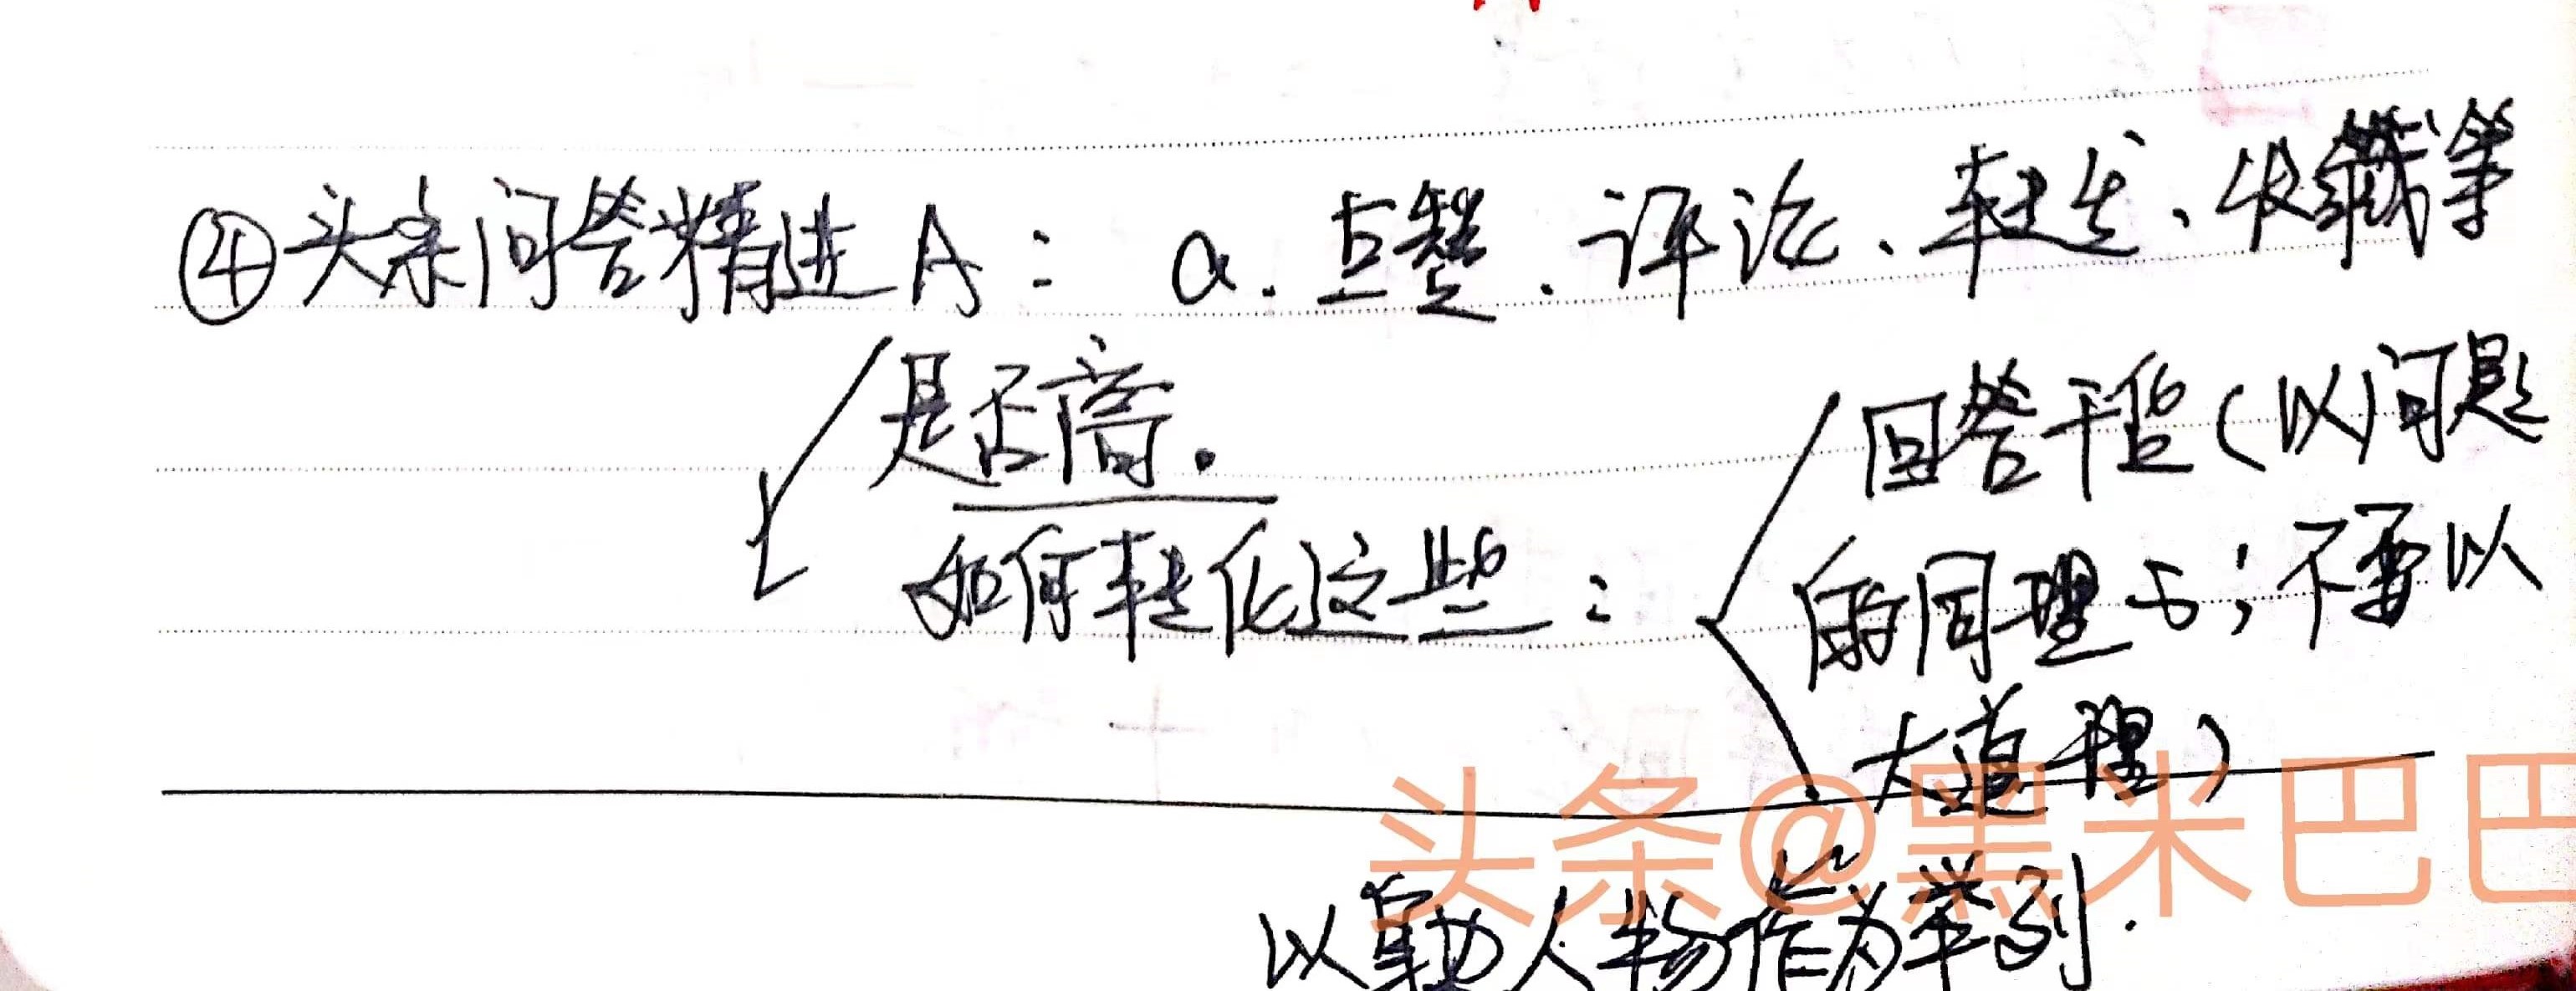 ④头条问答精进A： a.点赞、评论、转发、收藏等
是否高。
如何转化这些：
回答干货（以问题
的同理心；不要以
大道理）
以身边人物作为举例.
头条@黑米巴巴